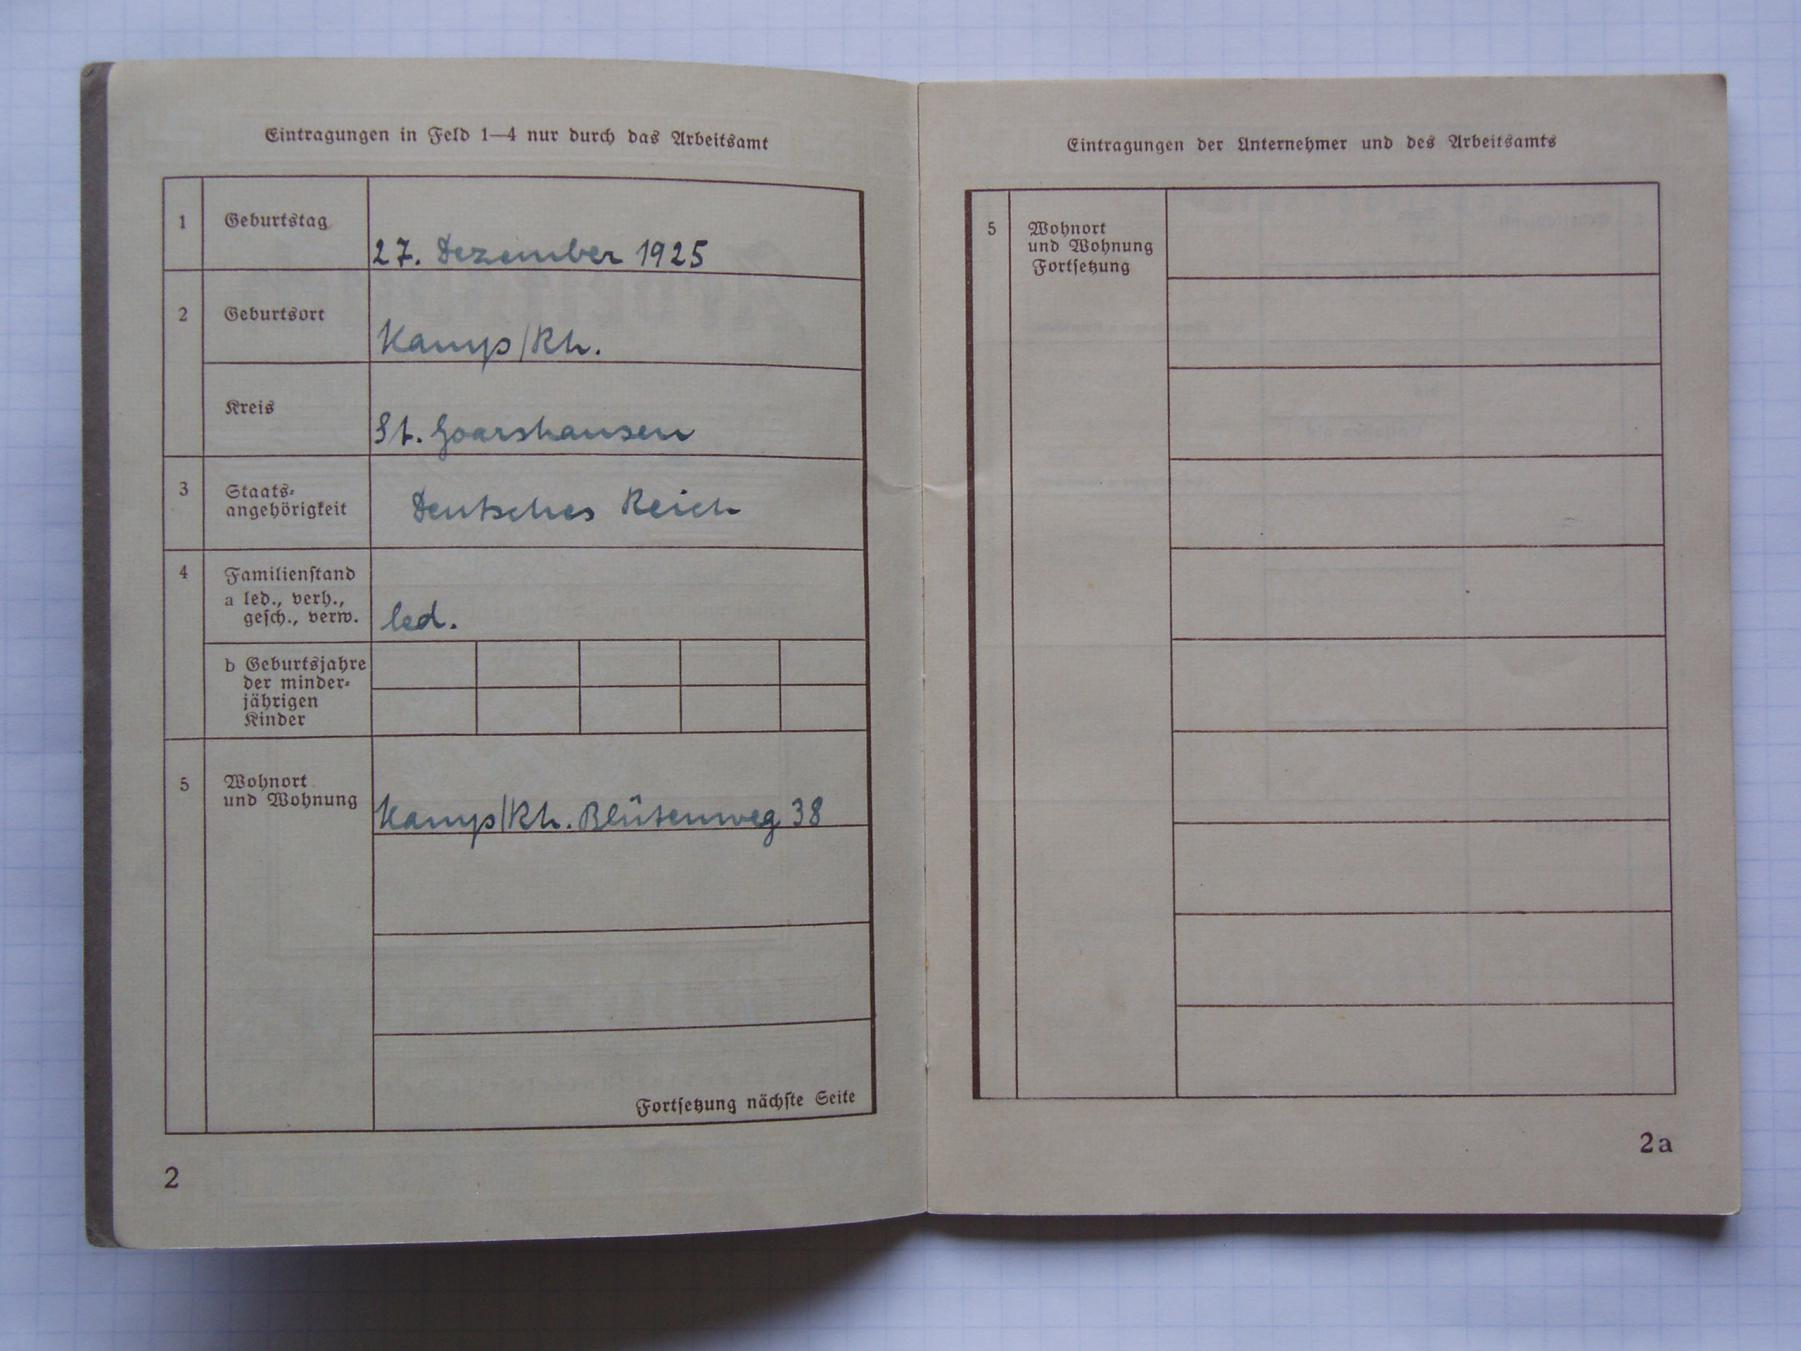 Eintragungen in Feld 1—4 nur durch das Arbeitsamt
1 Geburtstag
27. Dezember 1925
2 Geburtsort
Kamp/Rh.
Kreis
St. Goarshausen
3 Staats-
angehörigkeit
Deutsches Reich
4 Familienstand
a led., verh.,
gesch., verw.
led.
b Geburtsjahre
der minder-
jährigen
Kinder
5 Wohnort
und Wohnung
Kamp/Rh. Blütenweg 38
Fortsetzung nächste Seite
2
Eintragungen der Unternehmer und des Arbeitsamts
5 Wohnort
und Wohnung
Fortsetzung
2a